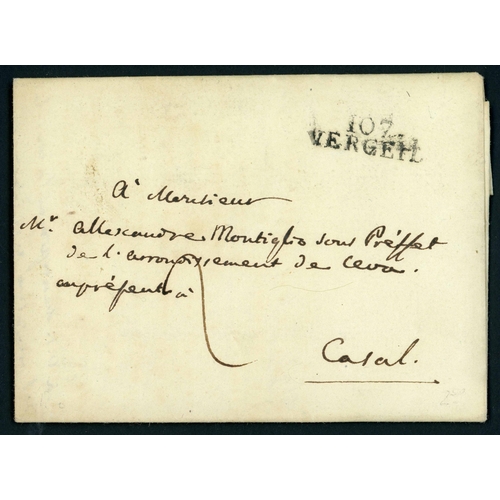 107
VERGEIL
À Monsieur
Mr. Allexandre Montiglio Sous Préffet
de l'arrondissement de Ceva.
apréfent à
2
Casal.